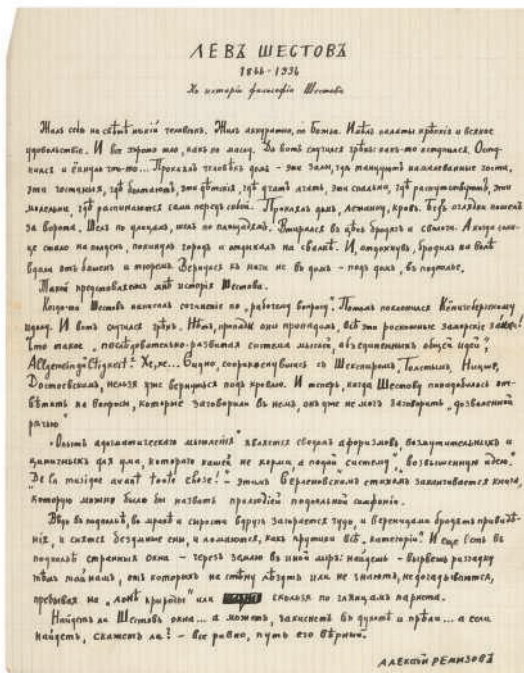 ЛЕВЪ ШЕСТОВЪ
1866-1936
Къ исторіи философіи Шестова
Жилъ себѣ на свѣтѣ нѣкій человѣкъ. Жилъ аккуратно, по Божьи. Имѣлъ палаты крѣпкія и всякое
удовольствіе. И все хорошо шло, какъ по маслу. Да вотъ случился грѣхъ: какъ-то оступился. Осту-
пился и что-то... Проклялъ человѣкъ домъ - эти залы, гдѣ танцуютъ напомаженные гости,
эти гостиныя, гдѣ болтаютъ, эти дѣтскія, гдѣ учатъ лгать, эти спальни, гдѣ распутствуютъ, эти
молельни, гдѣ распинаются сами передъ собой. Проклялъ домъ, лежанку, кровь. Безъ оглядки пошелъ
за ворота. Шелъ по улицамъ, шелъ по площадямъ. Втирался въ цѣпь бродягъ и сволочи. А когда солн-
це стало на полдень, покинулъ городъ и отдыхалъ на свалкѣ. И, отдохнувъ, бродилъ на волѣ
вдали отъ башенъ и тюремъ. Вернулся къ ночи не въ домъ - подъ домъ, въ подполье.
Такой представляется мнѣ исторія Шестова.
Когда-то Шестовъ написалъ сочиненіе по „рабочему вопросу". Потомъ поклонился Кёнигсбергскому
идолу. И вотъ случился грѣхъ. Нѣтъ, пропади они пропадомъ, всѣ это роскошные заморскіе
Что такое „последовательно-развитая система мыслей, объединенныхъ общей идеей",
Allgemeingültigkeit? Хе, хе... Видно, соприкоснувшись съ Шекспиромъ, Толстымъ, Ницше,
Достоевскимъ, нельзя уже вернуться подъ кровлю. И теперь, когда Шестову понадобилось от-
вѣтить на вопросы, которые заговорили въ немъ, онъ уже не могъ заговорить „дозволенной
рѣчью"
„Опытъ адогматическаго мышленія" является сводомъ афоризмовъ, возмутительныхъ и
циничныхъ для ума, котораго кашей не корми, а подай „систему", „возвышенную идею."
"De la musique avant toute chose!" - этимъ Верленовскимъ стихомъ заканчивается книга,
которую можно было бы назвать прелюдіей подпольной симфоніи.
Вѣдь въ подпольѣ, во мракѣ и сырости вдругъ загорается чудо, и вереницами бродятъ привидѣ-
нія, и снятся бездумные сны, и ломаются, какъ прутики всѣ „категоріи". И еще есть въ
подпольѣ странныя окна - черезъ землю въ иной міръ: найдешь - вырвешь разгадку
тѣмъ тайнамъ, отъ которыхъ на стѣну лѣзутъ или не знаютъ, недогадываются,
пребывая на „лонѣ природы" или скользя по глянцамъ паркета.
Найдетъ ли Шестовъ окна... а можетъ, закиснетъ въ духотѣ и прѣли... а если
найдетъ, скажетъ ли? - все равно, путь его вѣрный.
АЛЕКСѢЙ РЕМИЗОВЪ